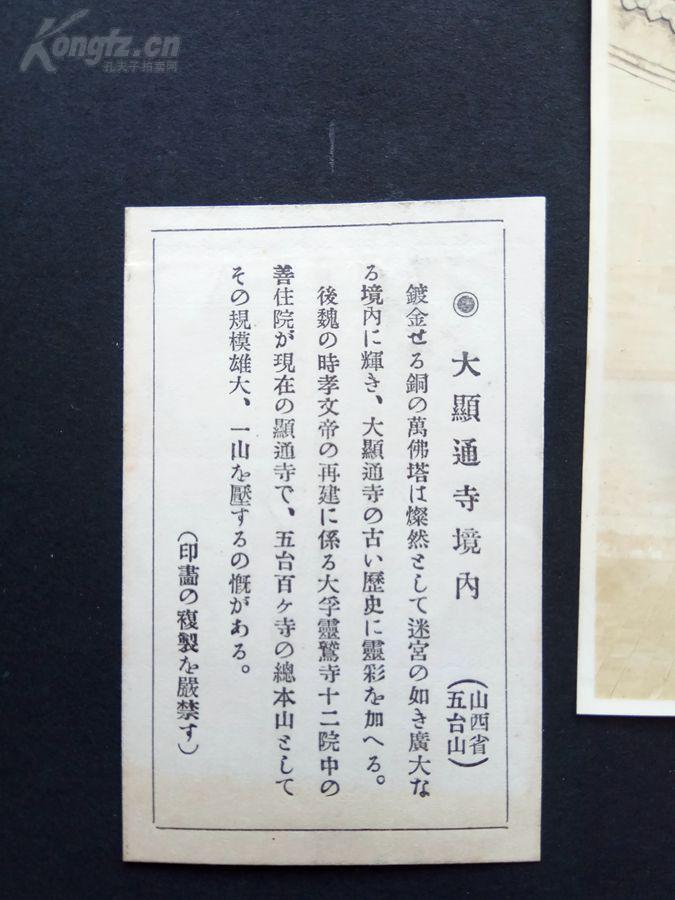 Kongfz.cn
孔夫子拍卖网
◉ 大顯通寺境內
（山西省
五台山）
鍍金せる銅の萬佛塔は燦然として迷宮の如き廣大な
る境內に輝き、大顯通寺の古い歷史に靈彩を加へる。
後魏の時孝文帝の再建に係る大孚靈鷲寺十二院中の
善住院が現在の顯通寺で、五台百ヶ寺の總本山として
その規模雄大、一山を壓するの慨がある。
（印畫の複製を嚴禁す）